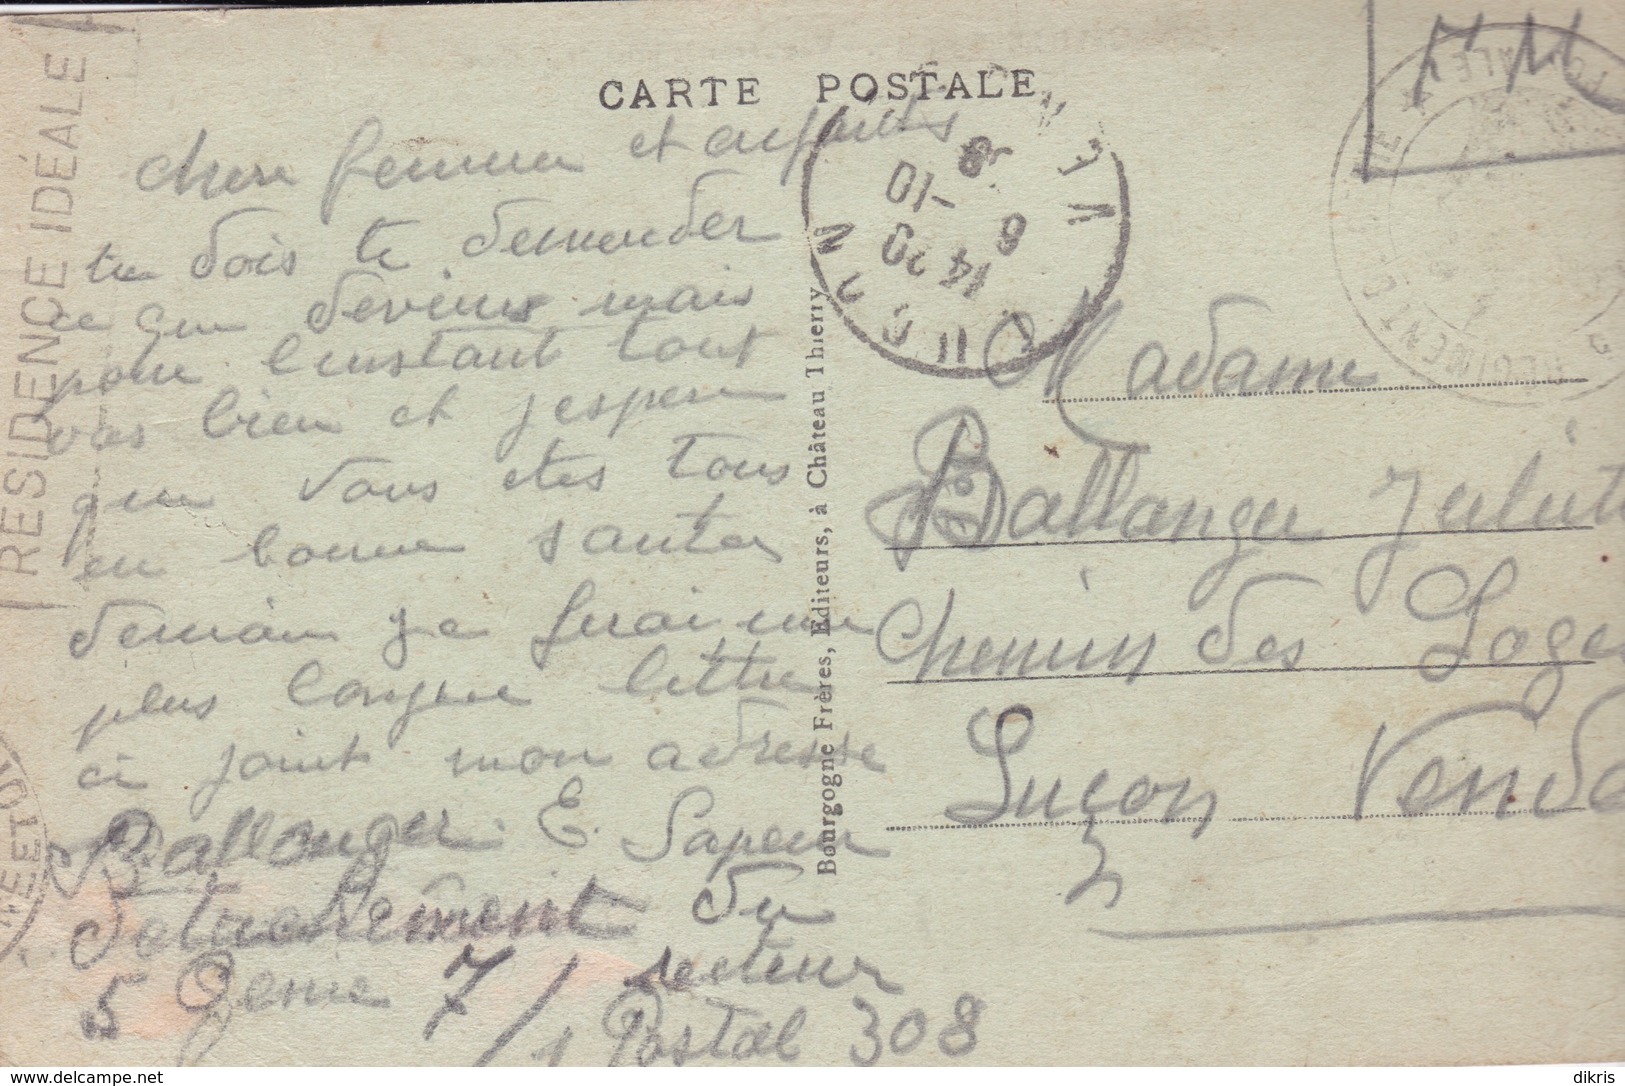 CARTE POSTALE
RESIDENCE IDÉALE
F. M
chere femme et enfants
tu dois te demander
ce que deviens mais
pour l'instant tout
vas bien et j espere
que vous etes tous
en bonne santer
demain je ferai une
plus longue lettre
ci joint mon adresse
Ballanger. E. Sapeur
detachement du
5 Genie 7/1 secteur
Postal 308
Bourgogne Frères, Editeurs, à Château Thierry
14 20
6 -10
Madame
Ballanger
Chemin des Loges
Luçon Vendé
www.delcampe.net
dikris